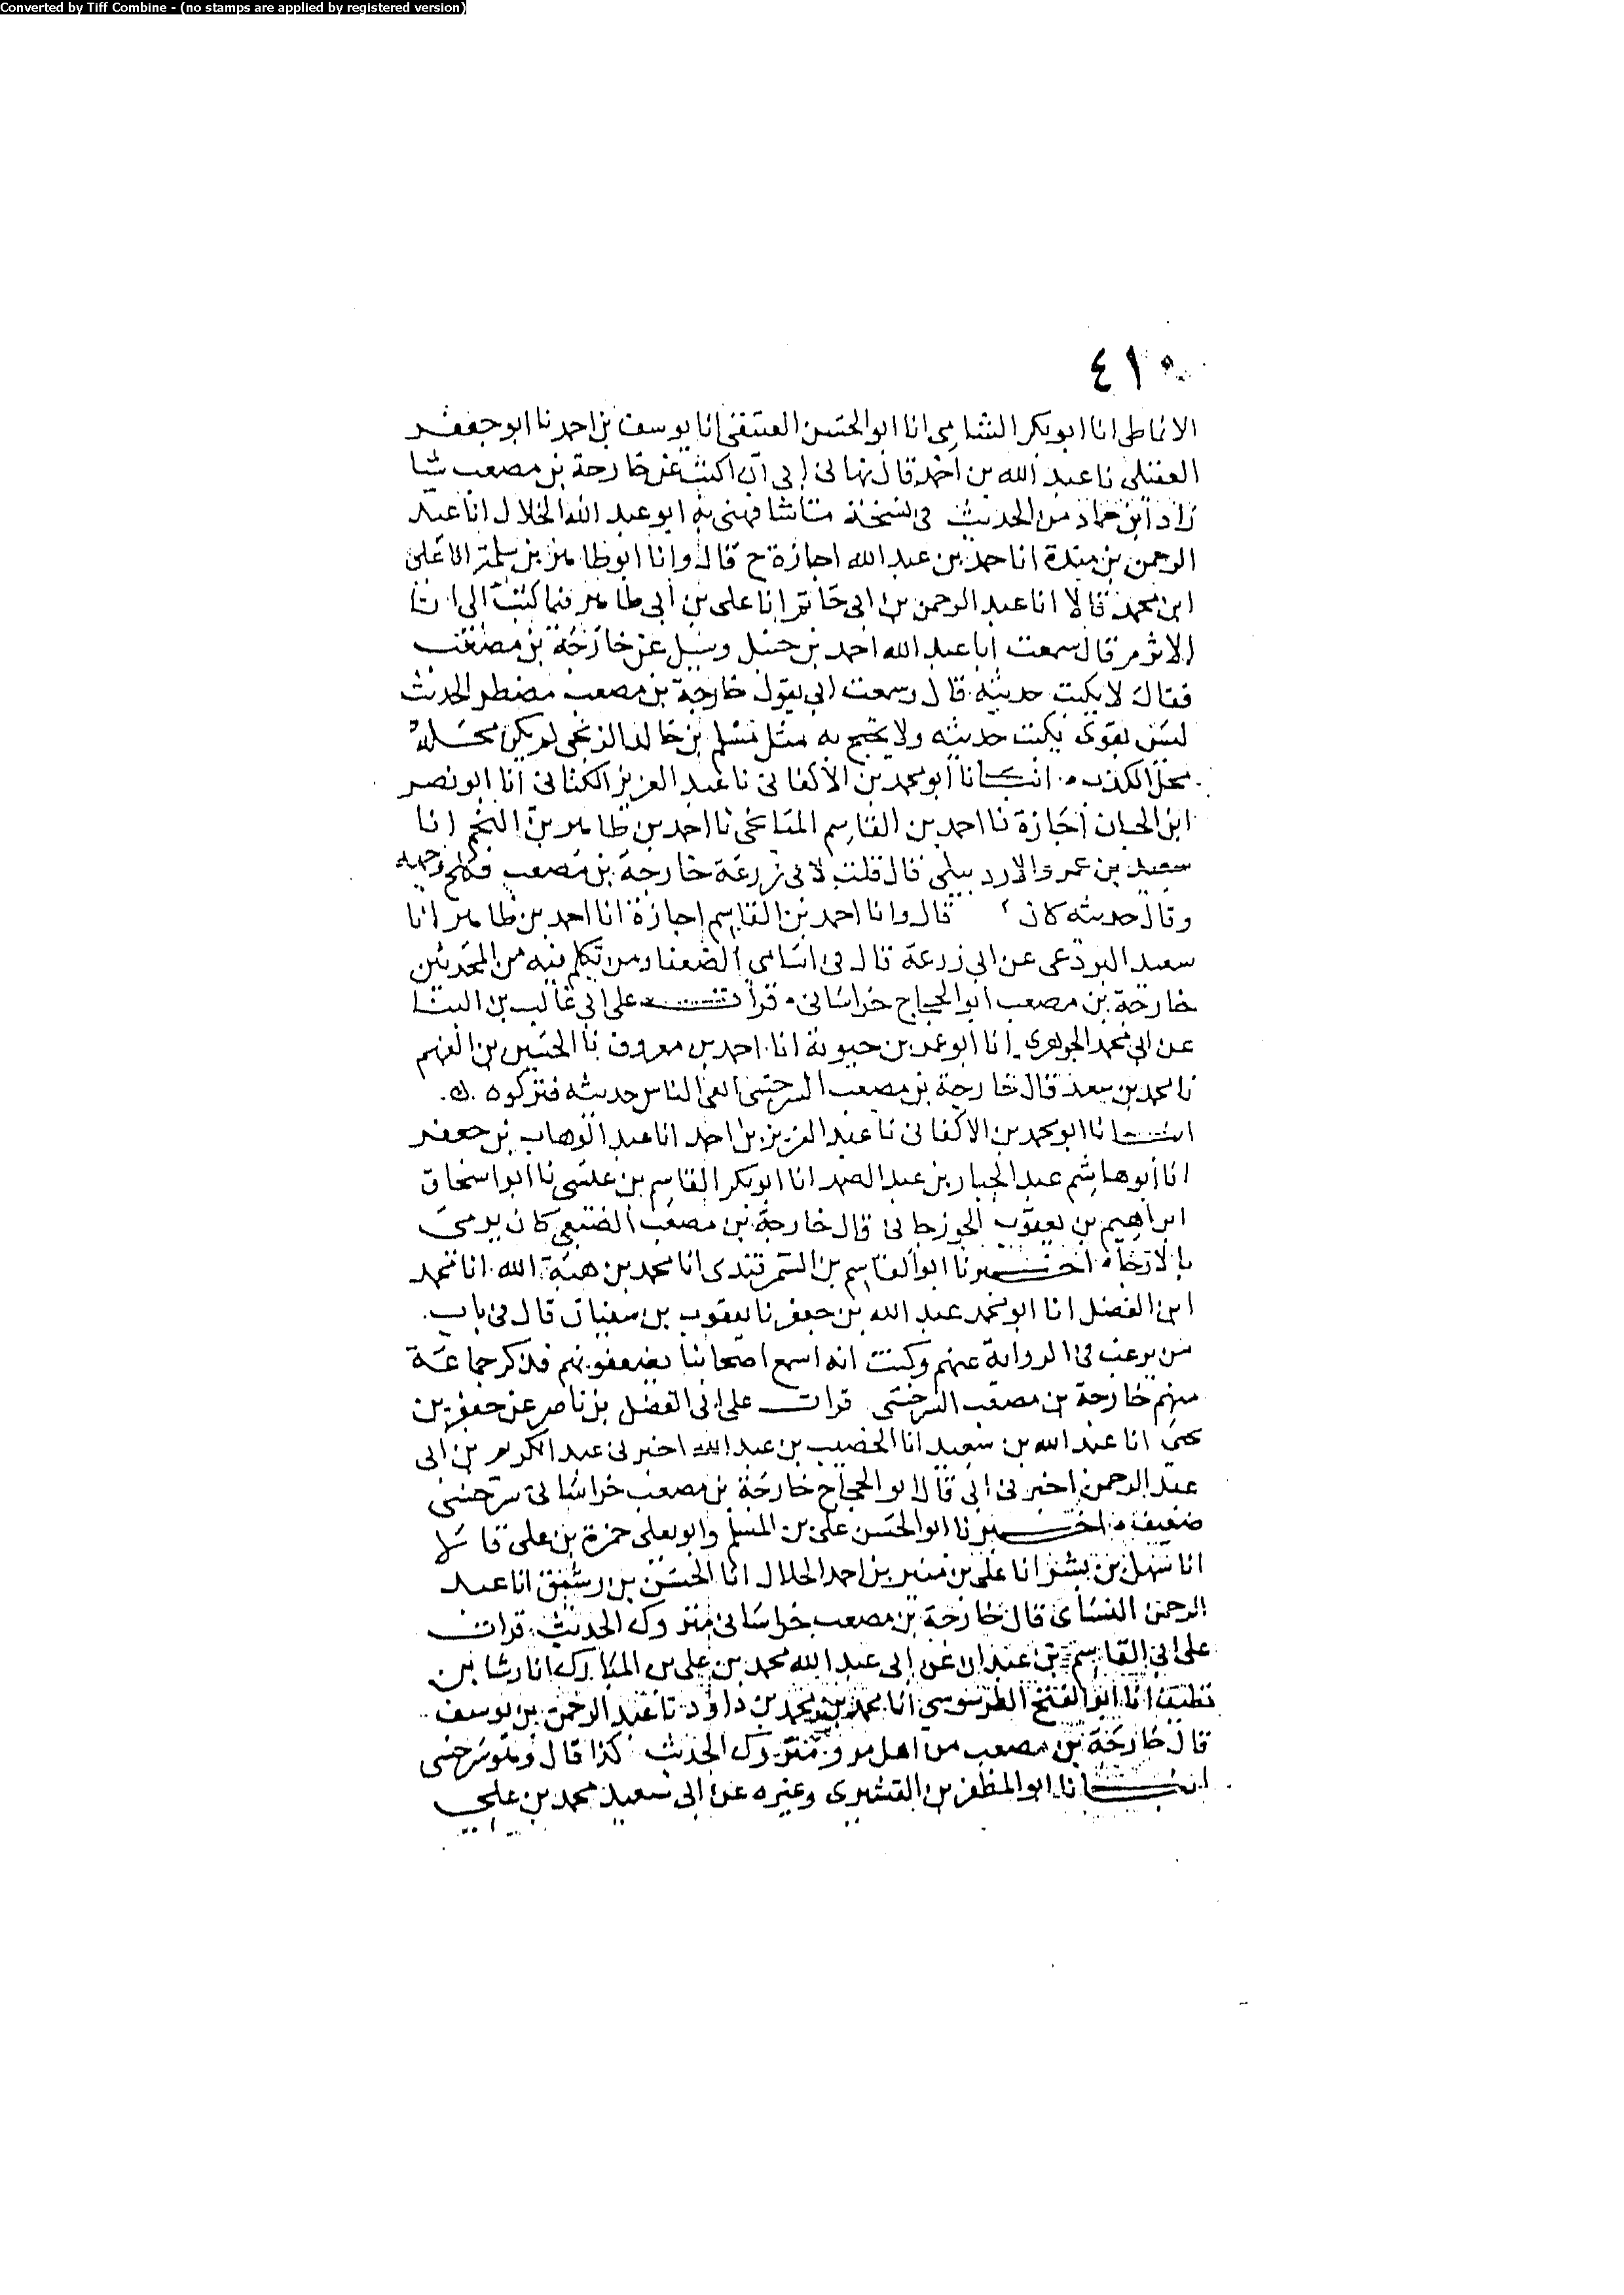 Converted by Tiff Combine - (no stamps are applied by registered version)
٤١٠
الانماطى انا ابو بكر الشامى انا ابو الحسن العتيقى انا يوسف بن احمد نا ابو جعفر
العقيلى نا عبد الله بن احمد قال نهانى ابى ان اكتب عن خارجة بن مصعب شيا
زاد ابن حماد من الحديث فى نسخة ما شافهنى به ابو عبد الله الخلال انا عبد
الرحمن بن مندة انا حمد بن عبد الله اجازة ح قال وانا ابو طاهر بن سلمة انا على
ابن محمد قالا انا عبد الرحمن بن ابى حاتم انا على بن ابى طاهر فيما كتب الى نا
الاثرم قال سمعت ابا عبد الله احمد بن حنبل وسيل عن خارجة بن مصعب
فقال لا يكتب حديثه قال وسمعت ابى يقول خارجة بن مصعب مضطر الحديث
ليس بقوى يكتب حديثه ولا يحتج به مثل مسلم بن خالد الزنجى لم يكن محله
محل الكذب انبانا ابو محمد بن الاكفانى نا عبد العزيز الكتانى انا ابو نصر
ابن الجبان اجازة نا احمد بن القاسم الميانجى نا احمد بن طاهر بن النجم انا
سعيد بن عمرو الاردبيلى قال قلت لابى زرعة خارجة بن مصعب فكلح وجهه
وقال حديثه كان قال وانا احمد بن القاسم اجازة انا احمد بن طاهر انا
سعيد البردعى عن ابى زرعة قال فى اسامى الضعفا ومن تكلم فيه من المحدثين
خارجة بن مصعب ابو الحجاج خراسانى قرات على ابى غالب بن البنا
عن ابى محمد الجوهرى انا ابو عمر بن حيوية انا احمد بن معروف نا الحسين بن الفهم
نا محمد بن سعد قال خارجة بن مصعب السرخسى اتقى الناس حديثه فتركوه
انبانا ابو محمد بن الاكفانى نا عبد العزيز بن احمد انا عبد الوهاب بن جعفر
انا ابو هاشم عبد الجبار بن عبد الصمد انا ابو بكر القاسم بن عيسى نا ابو اسحاق
ابراهيم بن يعقوب الجوزجانى قال خارجة بن مصعب الضبعى كان يرمى
بالارجاء اخبرنا ابو القاسم بن السمرقندى انا محمد بن هبة الله انا محمد
ابن الفضل انا ابو محمد عبد الله بن جعفر نا يعقوب بن سفيان قال فى باب
من يرغب فى الرواية عنهم وكنت انه اسمع اصحابنا يضعفونهم فذكر جماعة
منهم خارجة بن مصعب السرخسى قرات على ابى الفضل بن ناصر عن جعفر بن
يحيى انا عبد الله بن سعيد انا الخصيب بن عبد الله اخبرنى عبد الكريم بن ابى
عبد الرحمن اخبرنى ابى قال ابو الحجاج خارجة بن مصعب خراسانى سرخسى
ضعيف اخبرنا ابو الحسن على بن المسلم وابو يعلى حمزة بن على قالا
انا سهل بن بشر انا على بن منير بن احمد الخلال انا الحسن بن رشيق انا عبد
الرحمن النسائى قال خارجة بن مصعب خراسانى متروك الحديث قرات
على ابى القاسم بن عبدان عن ابى عبد الله محمد بن على بن المبارك انا رشا بن
نظيف انا ابو الفتح الطرسوسى انا محمد بن محمد بن داود نا عبد الرحمن بن يوسف
قال خارجة بن مصعب من اهل مرو متروك الحديث كذا قال وهو سرخسى
انبانا ابو المظفر بن القشيرى وغيره عن ابى سعيد محمد بن على